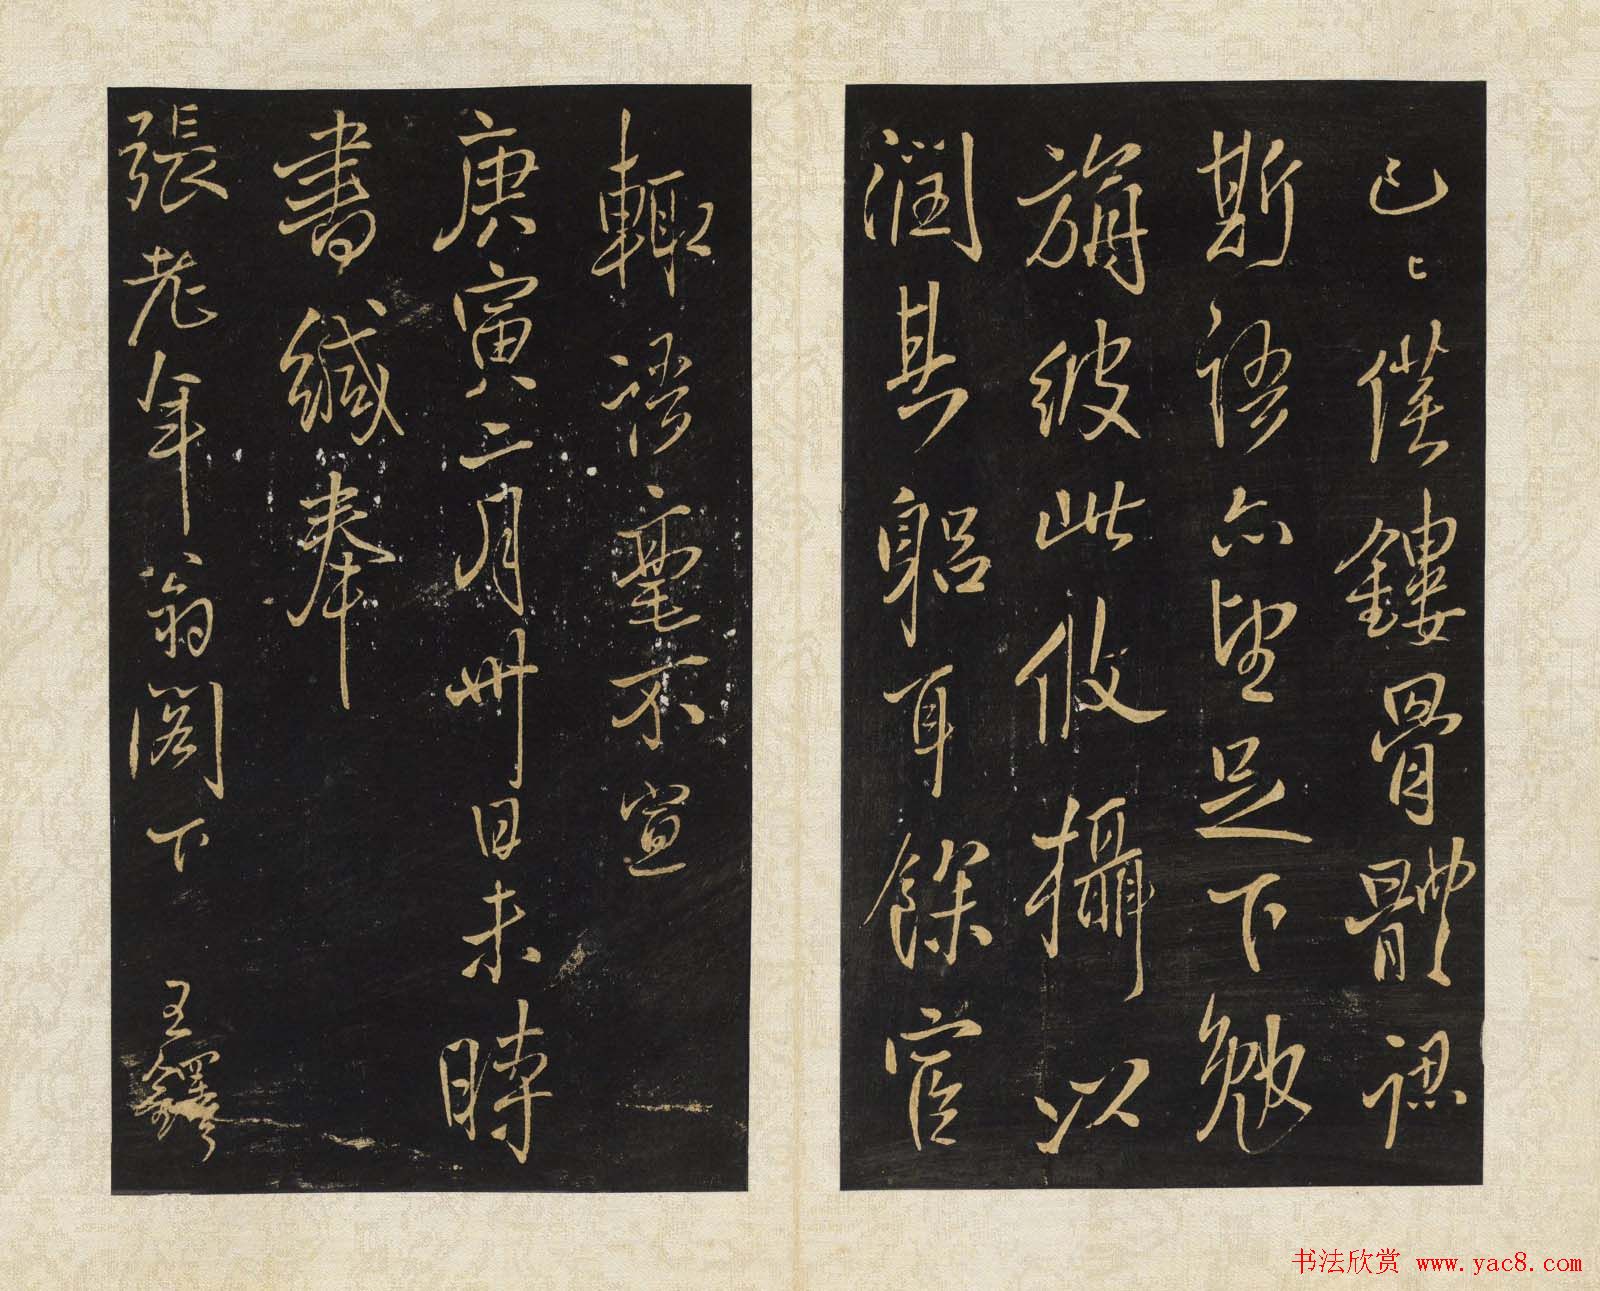 已〻僕鏤骨體認
斯語亦望足下勉
旃彼此攸攝以
潤其躳耳餘官
輙耄不宣
庚寅二月卅日未時
書緘奉
張老年翁閣下 王鐸
书法欣赏 www.yac8.com